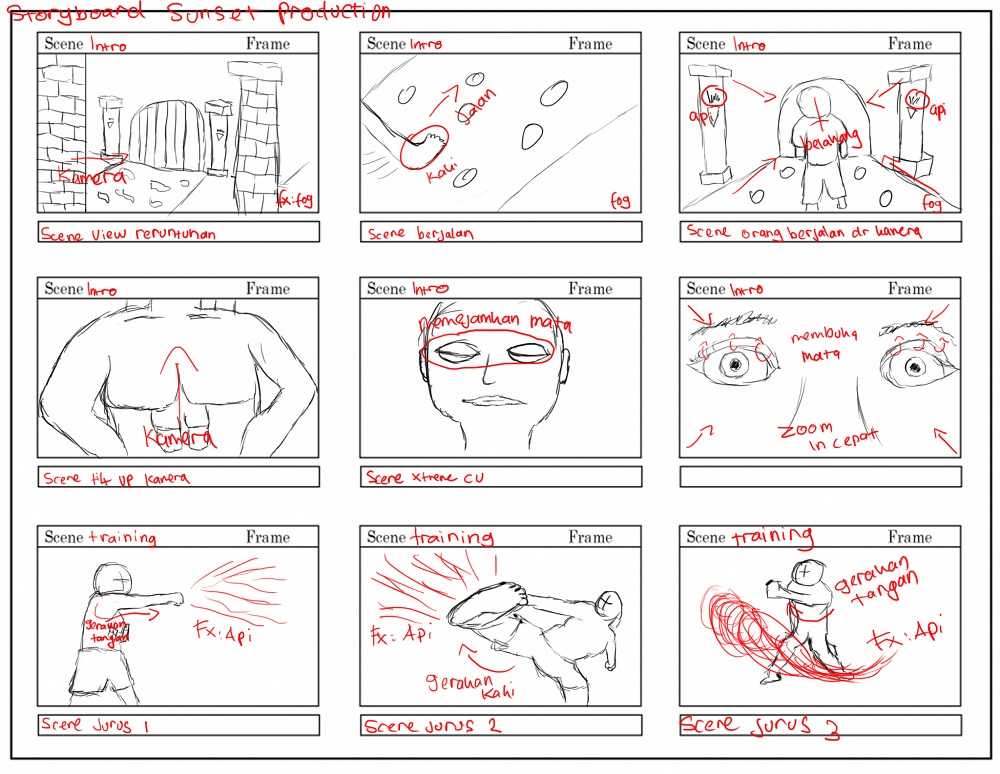 Storyboard Sunset Production
Scene Intro Frame
Kamera
fx:fog
Scene view reruntuhan
Scene Intro Frame
Jalan
Kaki
fog
Scene berjalan
Scene Intro Frame
api
api
belakang
fog
Scene orang berjalan dr kamera
Scene Intro Frame
Kamera
Scene tilt up kamera
Scene Intro Frame
memejamkan mata
Scene xtreme cu
Scene Intro Frame
membuka
mata
Zoom
in cepat
Scene training Frame
gerakan
tangan
Fx:Api
Scene Jurus 1
Scene training Frame
Fx: Api
gerakan
kaki
Scene Jurus 2
Scene training Frame
gerakan
tangan
Fx:Api
Scene Jurus 3